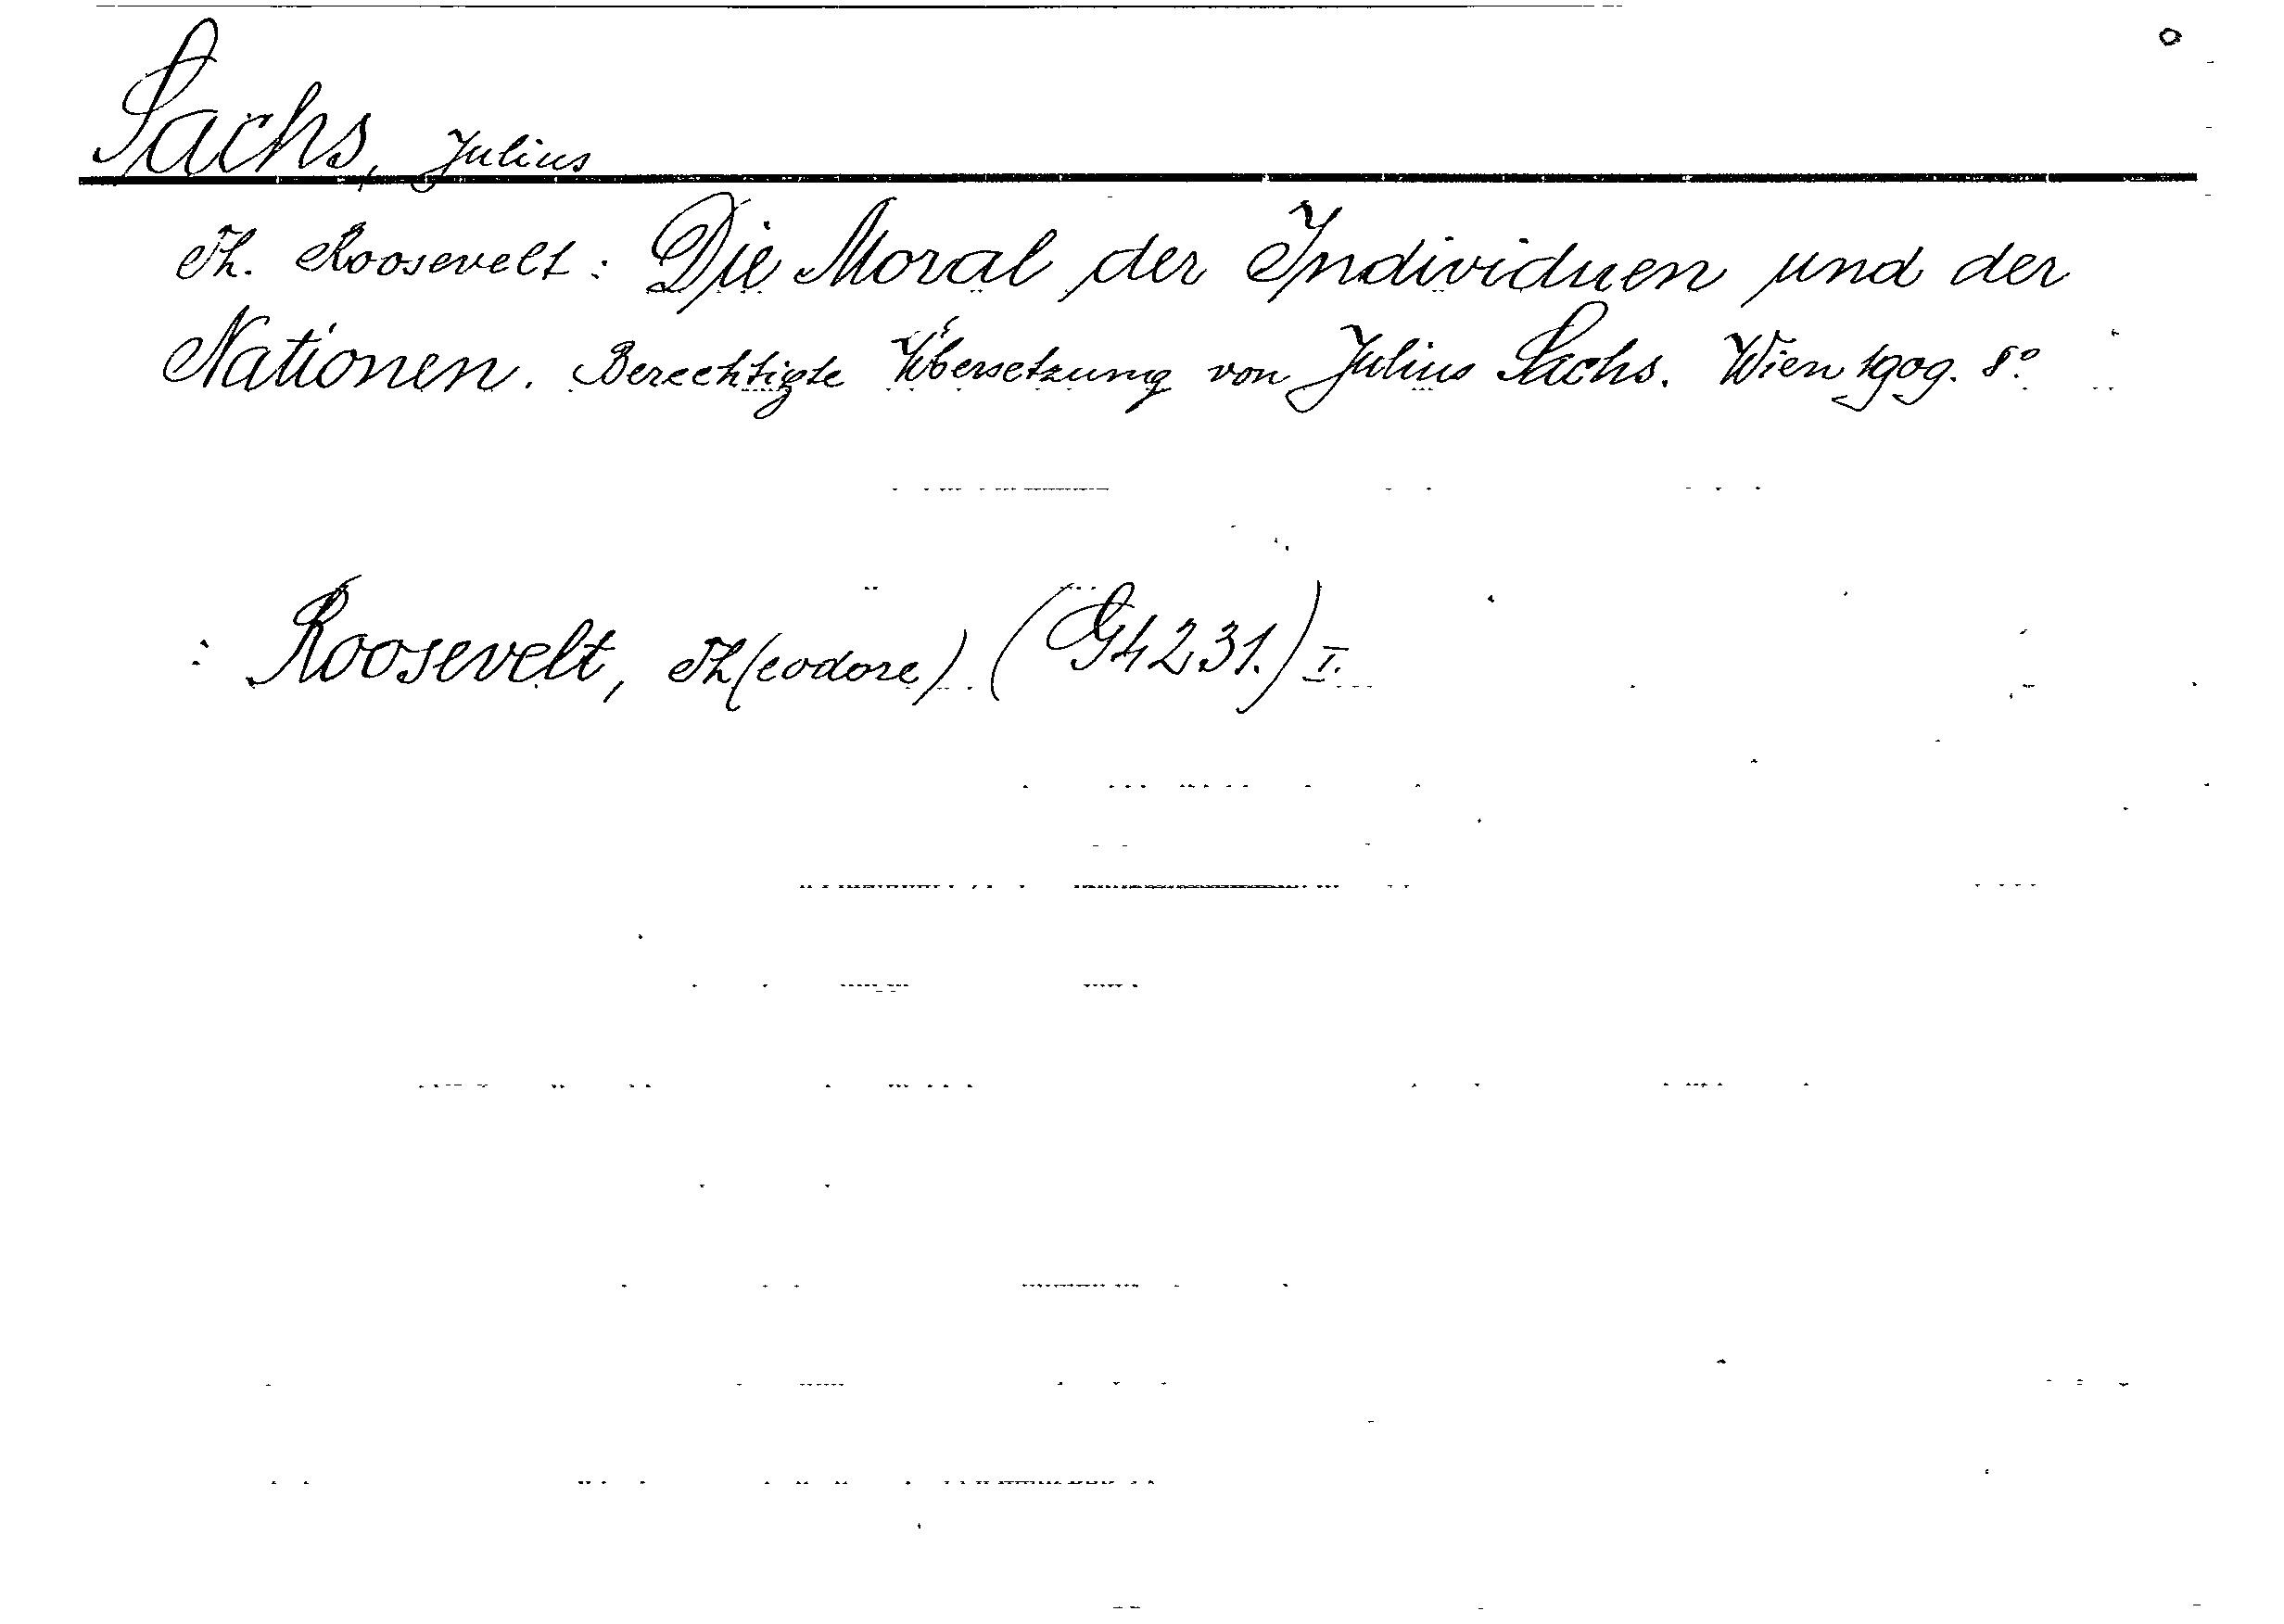 Sachs, Julius
Th. Roosevelt: Die Moral der Individuen und der
Nationen. Berechtigte Übersetzung von Julius Sachs. Wien 1909. 8°
: Roosevelt, Th(eodore) (G4231.) I.